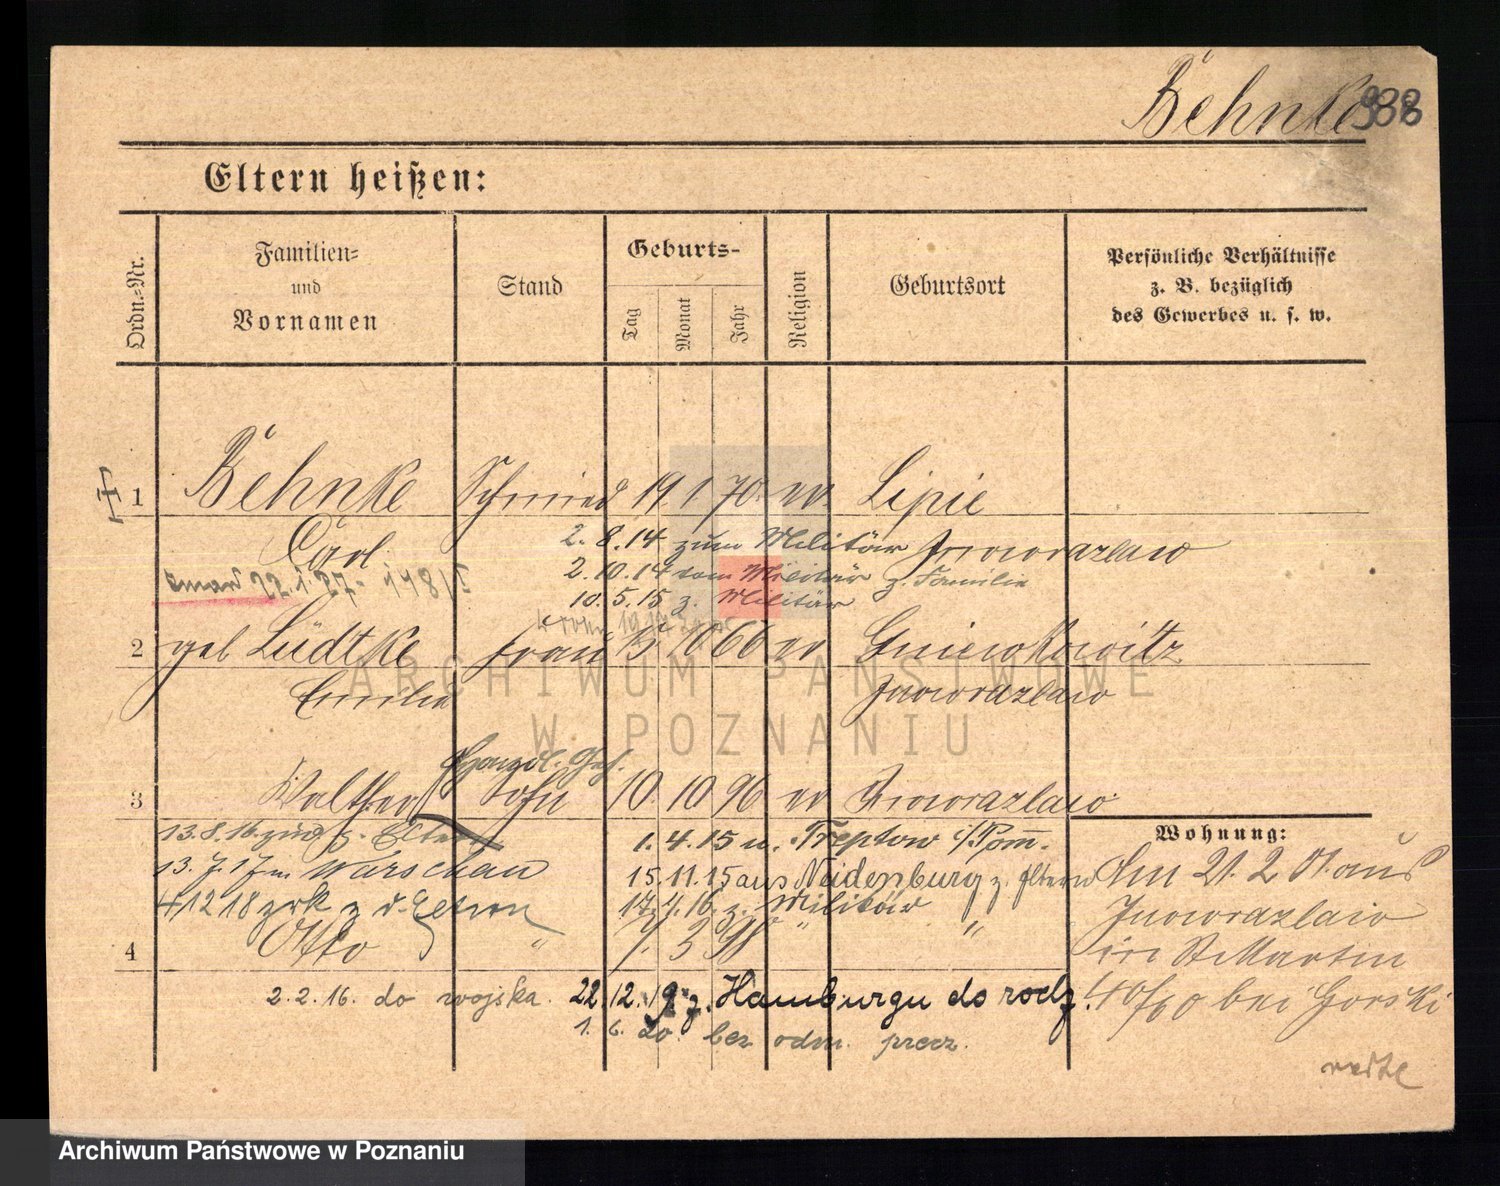 Behnke 938
Eltern heißen:
Ordn.-Nr.
Familien-
und
Vornamen
Stand
Geburts-
Tag
Monat
Jahr
Religion
Geburtsort
Persönliche Verhältnisse
z. B. bezüglich
des Gewerbes u. s. w.
1 Behnke Schmied 19 1 70 ev. Lipie
Carl Inowrazlaw
2. 8. 14 zum Militär
2. 10. 14 vom Militär z. Familie
10. 5. 15 z. Militär
zmar 22. 1. 27
2 geb Lüdtke Frau 10 66 ev Gniewkowitz
Emilie Inowrazlaw
3 Walther Sohn 10. 10 96 ev Inowrazlaw
13. 8. 16. zurück z. Eltern
1. 4. 15 n. Treptow i/Pom.
13. 7. 17 n Warschau
15. 11. 15 aus Neidenburg z. Eltern
4 12 18 zrk z d. Eltern
17. 4. 16 z. Militär
4 Otto " 7. 3 98 " "
2. 2. 16. do wojska. 22. 12. 19 z. Hamburgu do rodz.
1. 6. 20. bez odm. przez.
Wohnung:
Am 21. 2 01. aus
Inowrazlaw
in St Martin
40/60 bei Gorski
ARCHIWUM PAŃSTWOWE
W POZNANIU
Archiwum Państwowe w Poznaniu